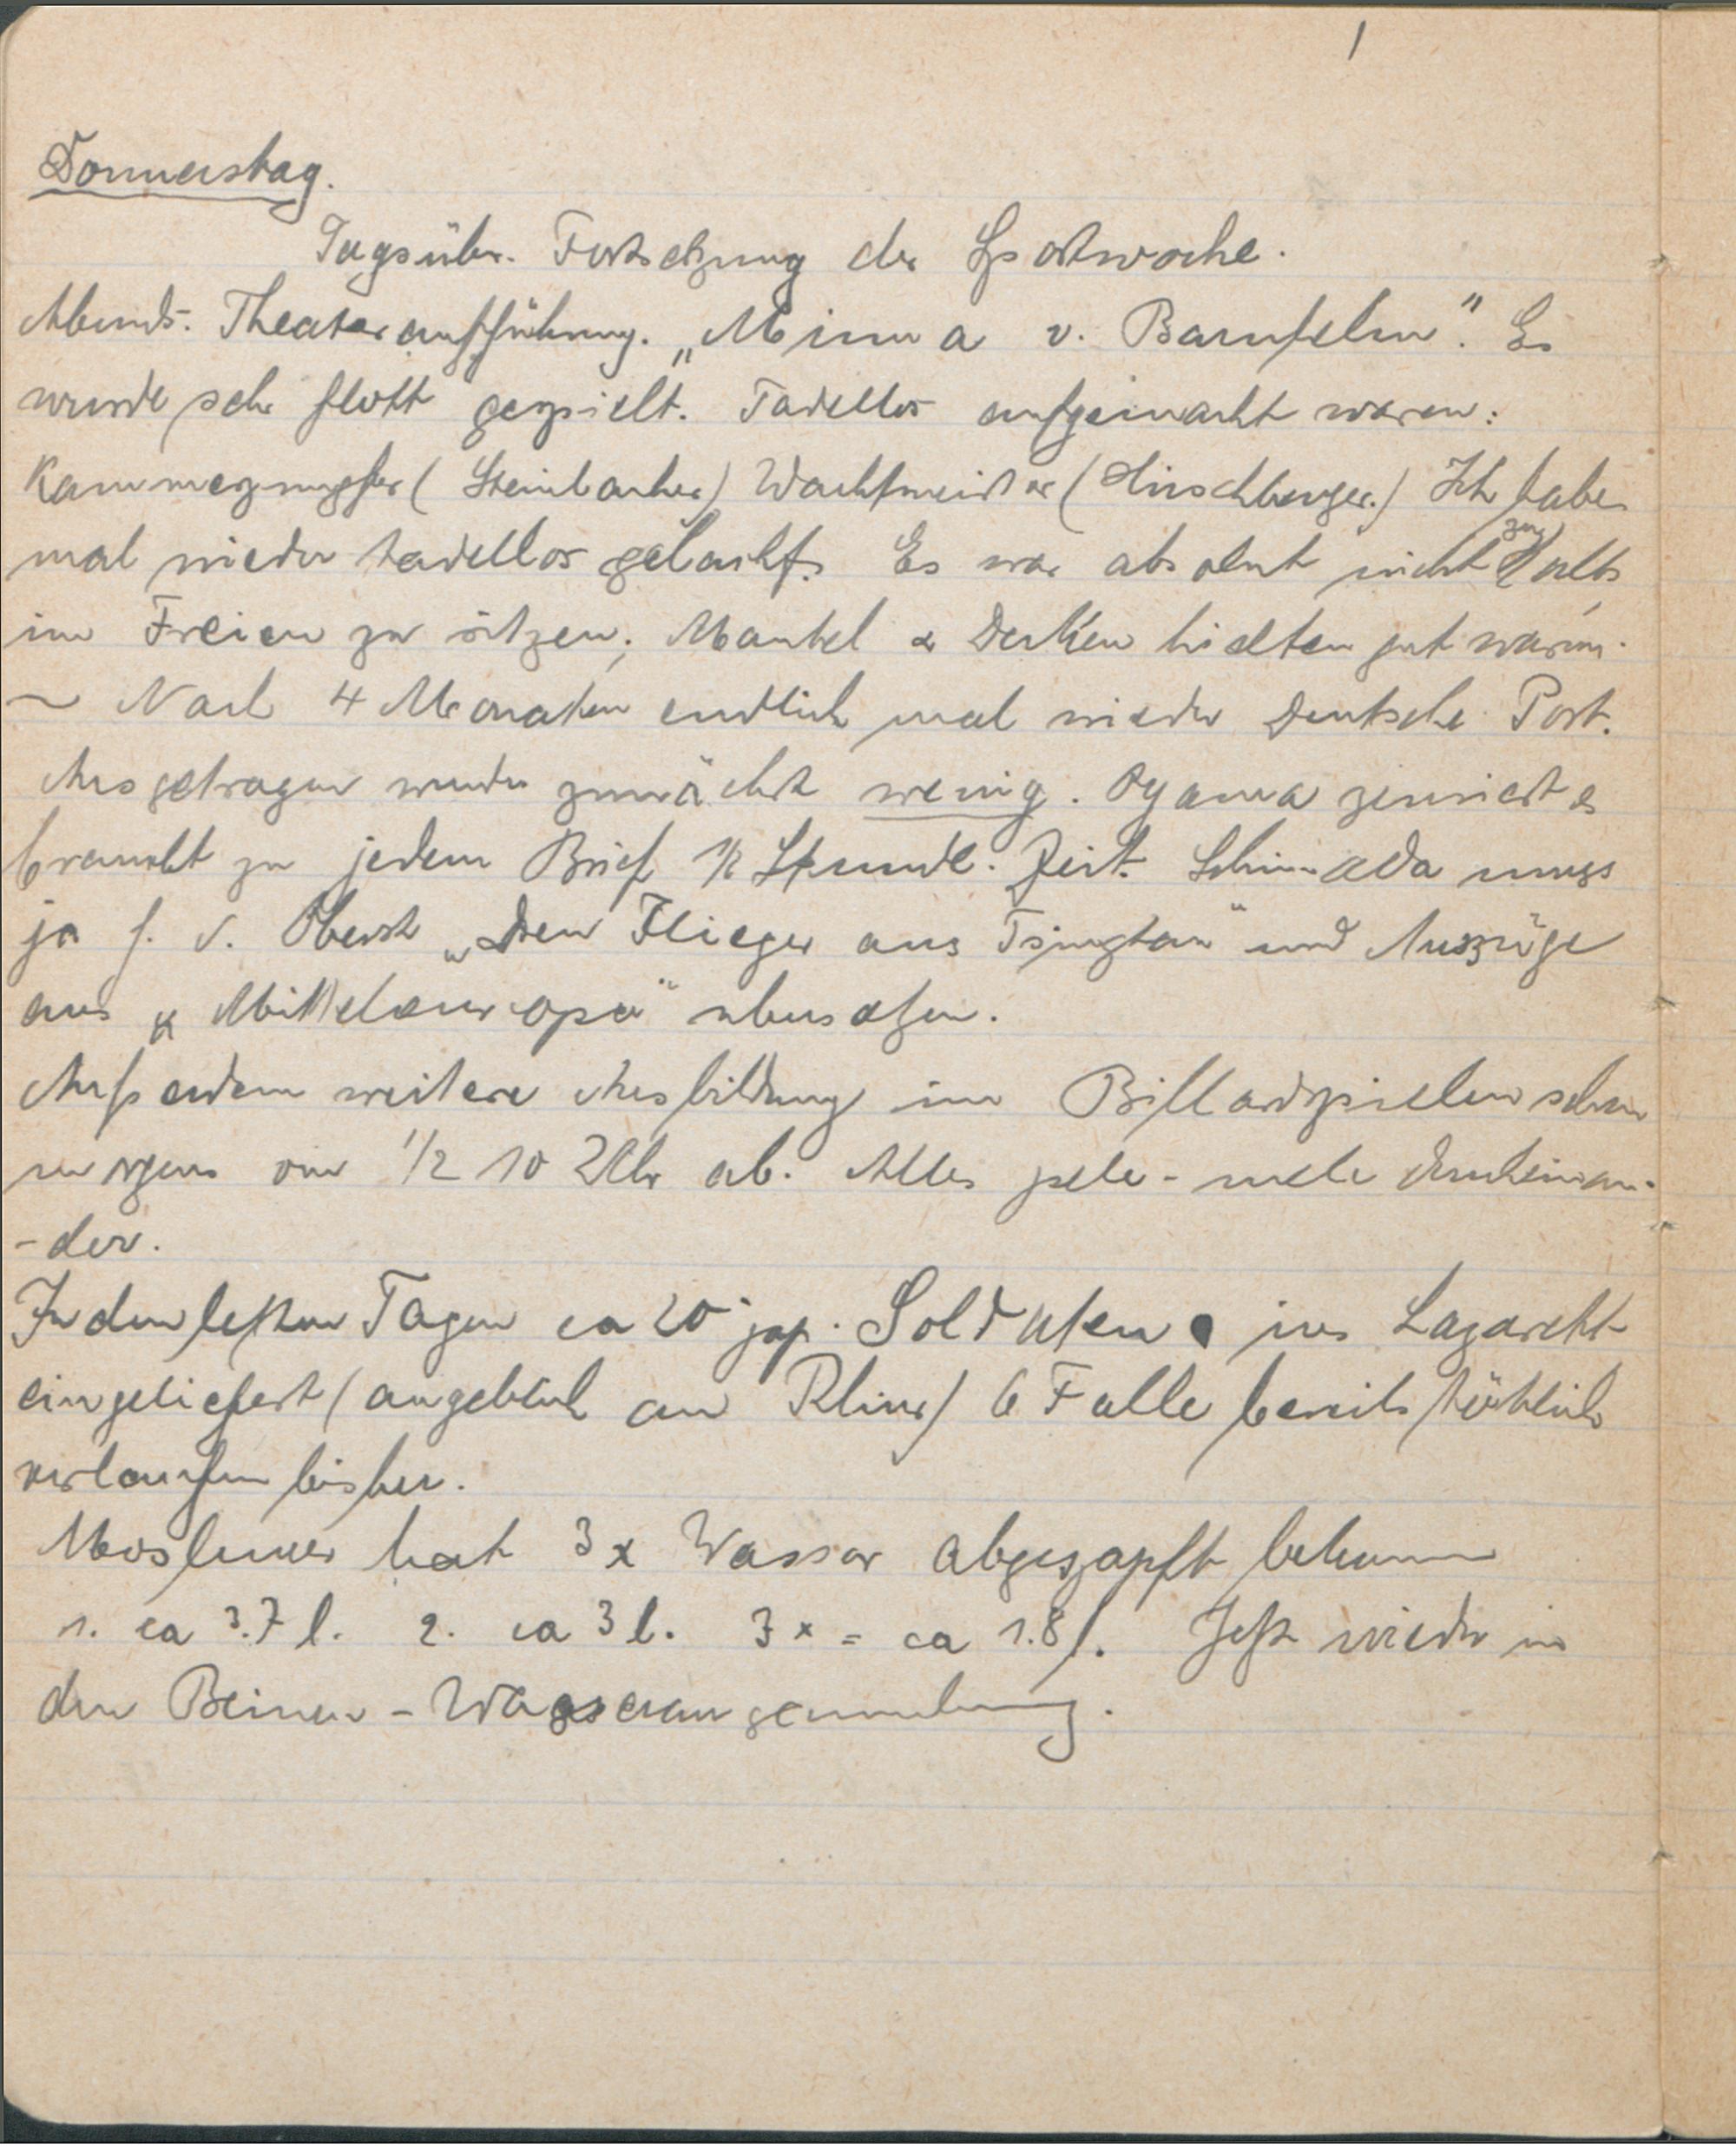 1
Donnerstag.
Tagsüber. Fortsetzung der Sportwoche.
Abends. Theateraufführung. „Minna v. Barnhelm". Es
wurde sehr flott gespielt. Tadellos aufgemacht waren:
Kammerjungfer (Steinbacher) Wachtmeister (Hirschberger.) Ich habe
mal wieder tadellos gelacht. Es war absolut nicht zu kalt
im Freien zu sitzen; Mantel & Decken hielten gut warm.
~ Nach 4 Monaten endlich mal wieder Deutsche Post.
Ausgetragen wurde zunächst wenig. Oyama zensiert &
braucht zu jedem Brief 1/2 Stunde. Zeit. Schimada muss
ja f. d. Oberst „Den Flieger aus Tsingtau" und Auszüge
aus „Mitteleuropa" übersetzen.
Außerdem weitere Ausbildung im Billardspielen schon
morgens von 1/2 10 Uhr ab. Alles pele-mele durcheinan-
-der.
In den letzten Tagen ca 20 jap. Soldaten ins Lazarett
eingeliefert (angeblich an) 6 Fälle bereits tötlich
verlaufen bisher.
hat 3x Wasser abgezapft bekommen
1. ca 3.7 l. 2. ca 3 l. 3x = ca 1.8 l. Jetzt wieder in
den Beinen - Wasseransammlung.